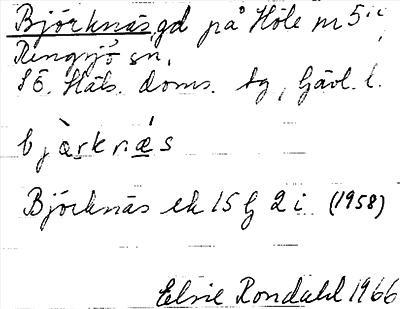 Björknäs, gd på Höle nr 5
Rengsjö sn,
Sö. Häls. Doms. tg, Gävl. l.
bjàrknǽs
Björknäs ek 15 G 2 i (1958)
Elsie Rondahl 1966